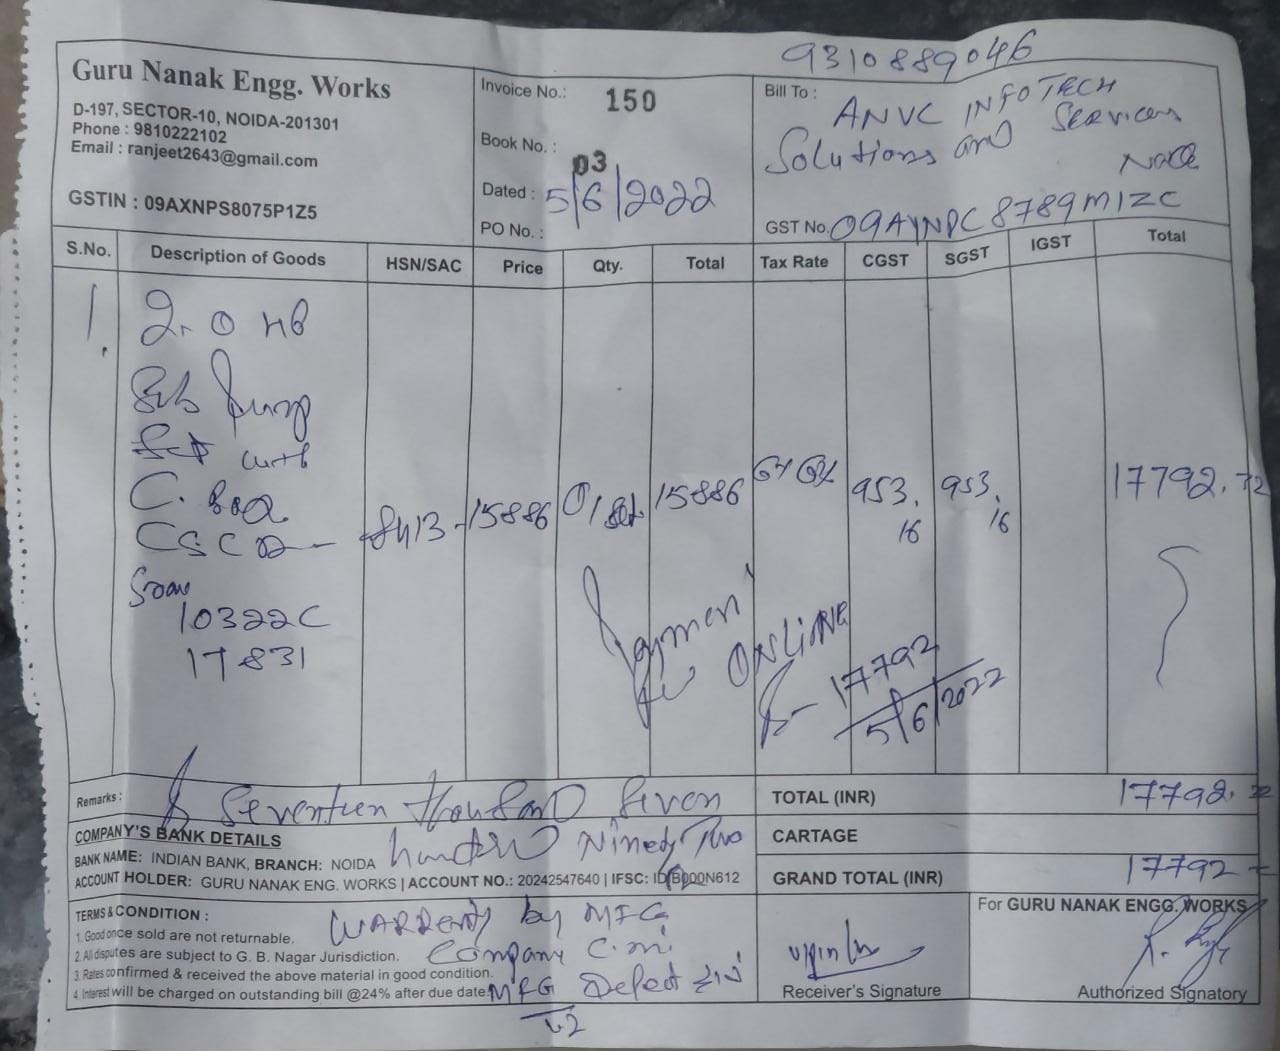 9310889046
Guru Nanak Engg. Works
D-197, SECTOR-10, NOIDA-201301
Phone : 9810222102
Email : ranjeet2643@gmail.com
GSTIN : 09AXNPS8075P1Z5
Invoice No.: 150
Book No. : 03
Dated : 5/6/2022
PO No. :
Bill To : ANVC INFOTECH
Solutions and Services
GST No. 09AYNPC8789M1ZC
S.No. Description of Goods HSN/SAC Price Qty. Total Tax Rate CGST SGST IGST Total
1. 2.0 HP
Sub Pump
Set with
C. Box
8413 - 15886 01 Set 15886 6% 6% 953.16 953.16 17792.32
10322C
17831
Payment
ONLINE
17792
5/6/2022
Remarks : Seventeen thousand Seven
hundred Ninety Two
TOTAL (INR) 17792.32
CARTAGE
GRAND TOTAL (INR) 17792
COMPANY'S BANK DETAILS
BANK NAME: INDIAN BANK, BRANCH: NOIDA
ACCOUNT HOLDER: GURU NANAK ENG. WORKS | ACCOUNT NO.: 20242547640 | IFSC: IDIB000N612
TERMS & CONDITION :
1. Good once sold are not returnable.
2. All disputes are subject to G. B. Nagar Jurisdiction.
3. Rates confirmed & received the above material in good condition.
4. Interest will be charged on outstanding bill @24% after due date.
WARRENTY by MFG
Company
MFG Defect
Receiver's Signature
For GURU NANAK ENGG. WORKS
Authorized Signatory